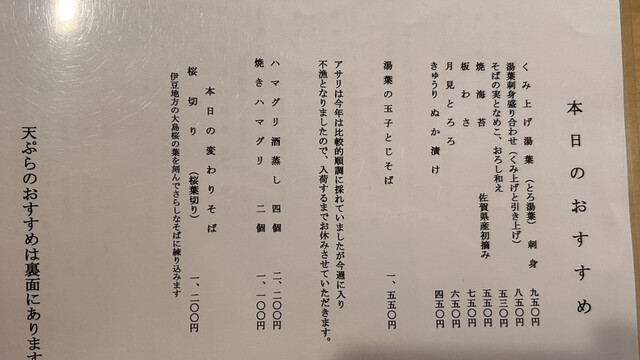 本日のおすすめ
くみ上げ湯葉(とろ湯葉)刺身 九五〇円
湯葉刺身盛り合わせ(くみ上げと引き上げ) 八五〇円
そばの実となめこ、おろし和え 五三〇円
焼海苔 佐賀県産初摘み 五五〇円
板わさ 七五〇円
月見とろろ 六五〇円
きゅうりぬか漬け 四五〇円
湯葉の玉子とじそば 一、五五〇円
アサリは今年は比較的順調に採れていましたが今週に入り
不漁となりましたので、入荷するまでお休みさせていただきます。
ハマグリ酒蒸し 四個 二、二〇〇円
焼きハマグリ 二個 一、一〇〇円
本日の変わりそば
桜切り(桜葉切り) 一、二〇〇円
伊豆地方の大島桜の葉を刻んでさらしなそばに練り込みます
天ぷらのおすすめは裏面にあります